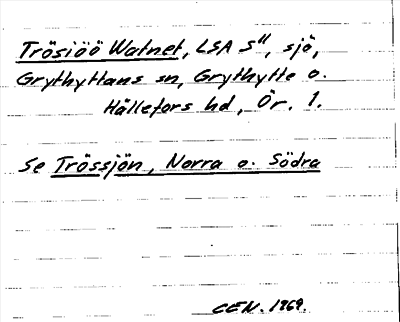 Trösiöö Watnet, LSA S", sjö,
Grythyttans sn, Grythytte o.
Hällefors hd, Ör. 1.
Se Trössjön, Norra o. Södra
CEN. 1969.